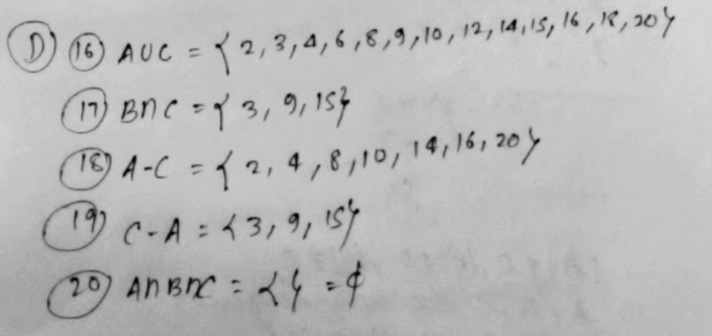 D) 16) A∪C = {2,3,4,6,8,9,10,12,14,15,16,18,20}
17) B∩C = {3,9,15}
18) A-C = {2,4,8,10,14,16,20}
19) C-A = {3,9,15}
20) A∩B∩C = {} = ϕ